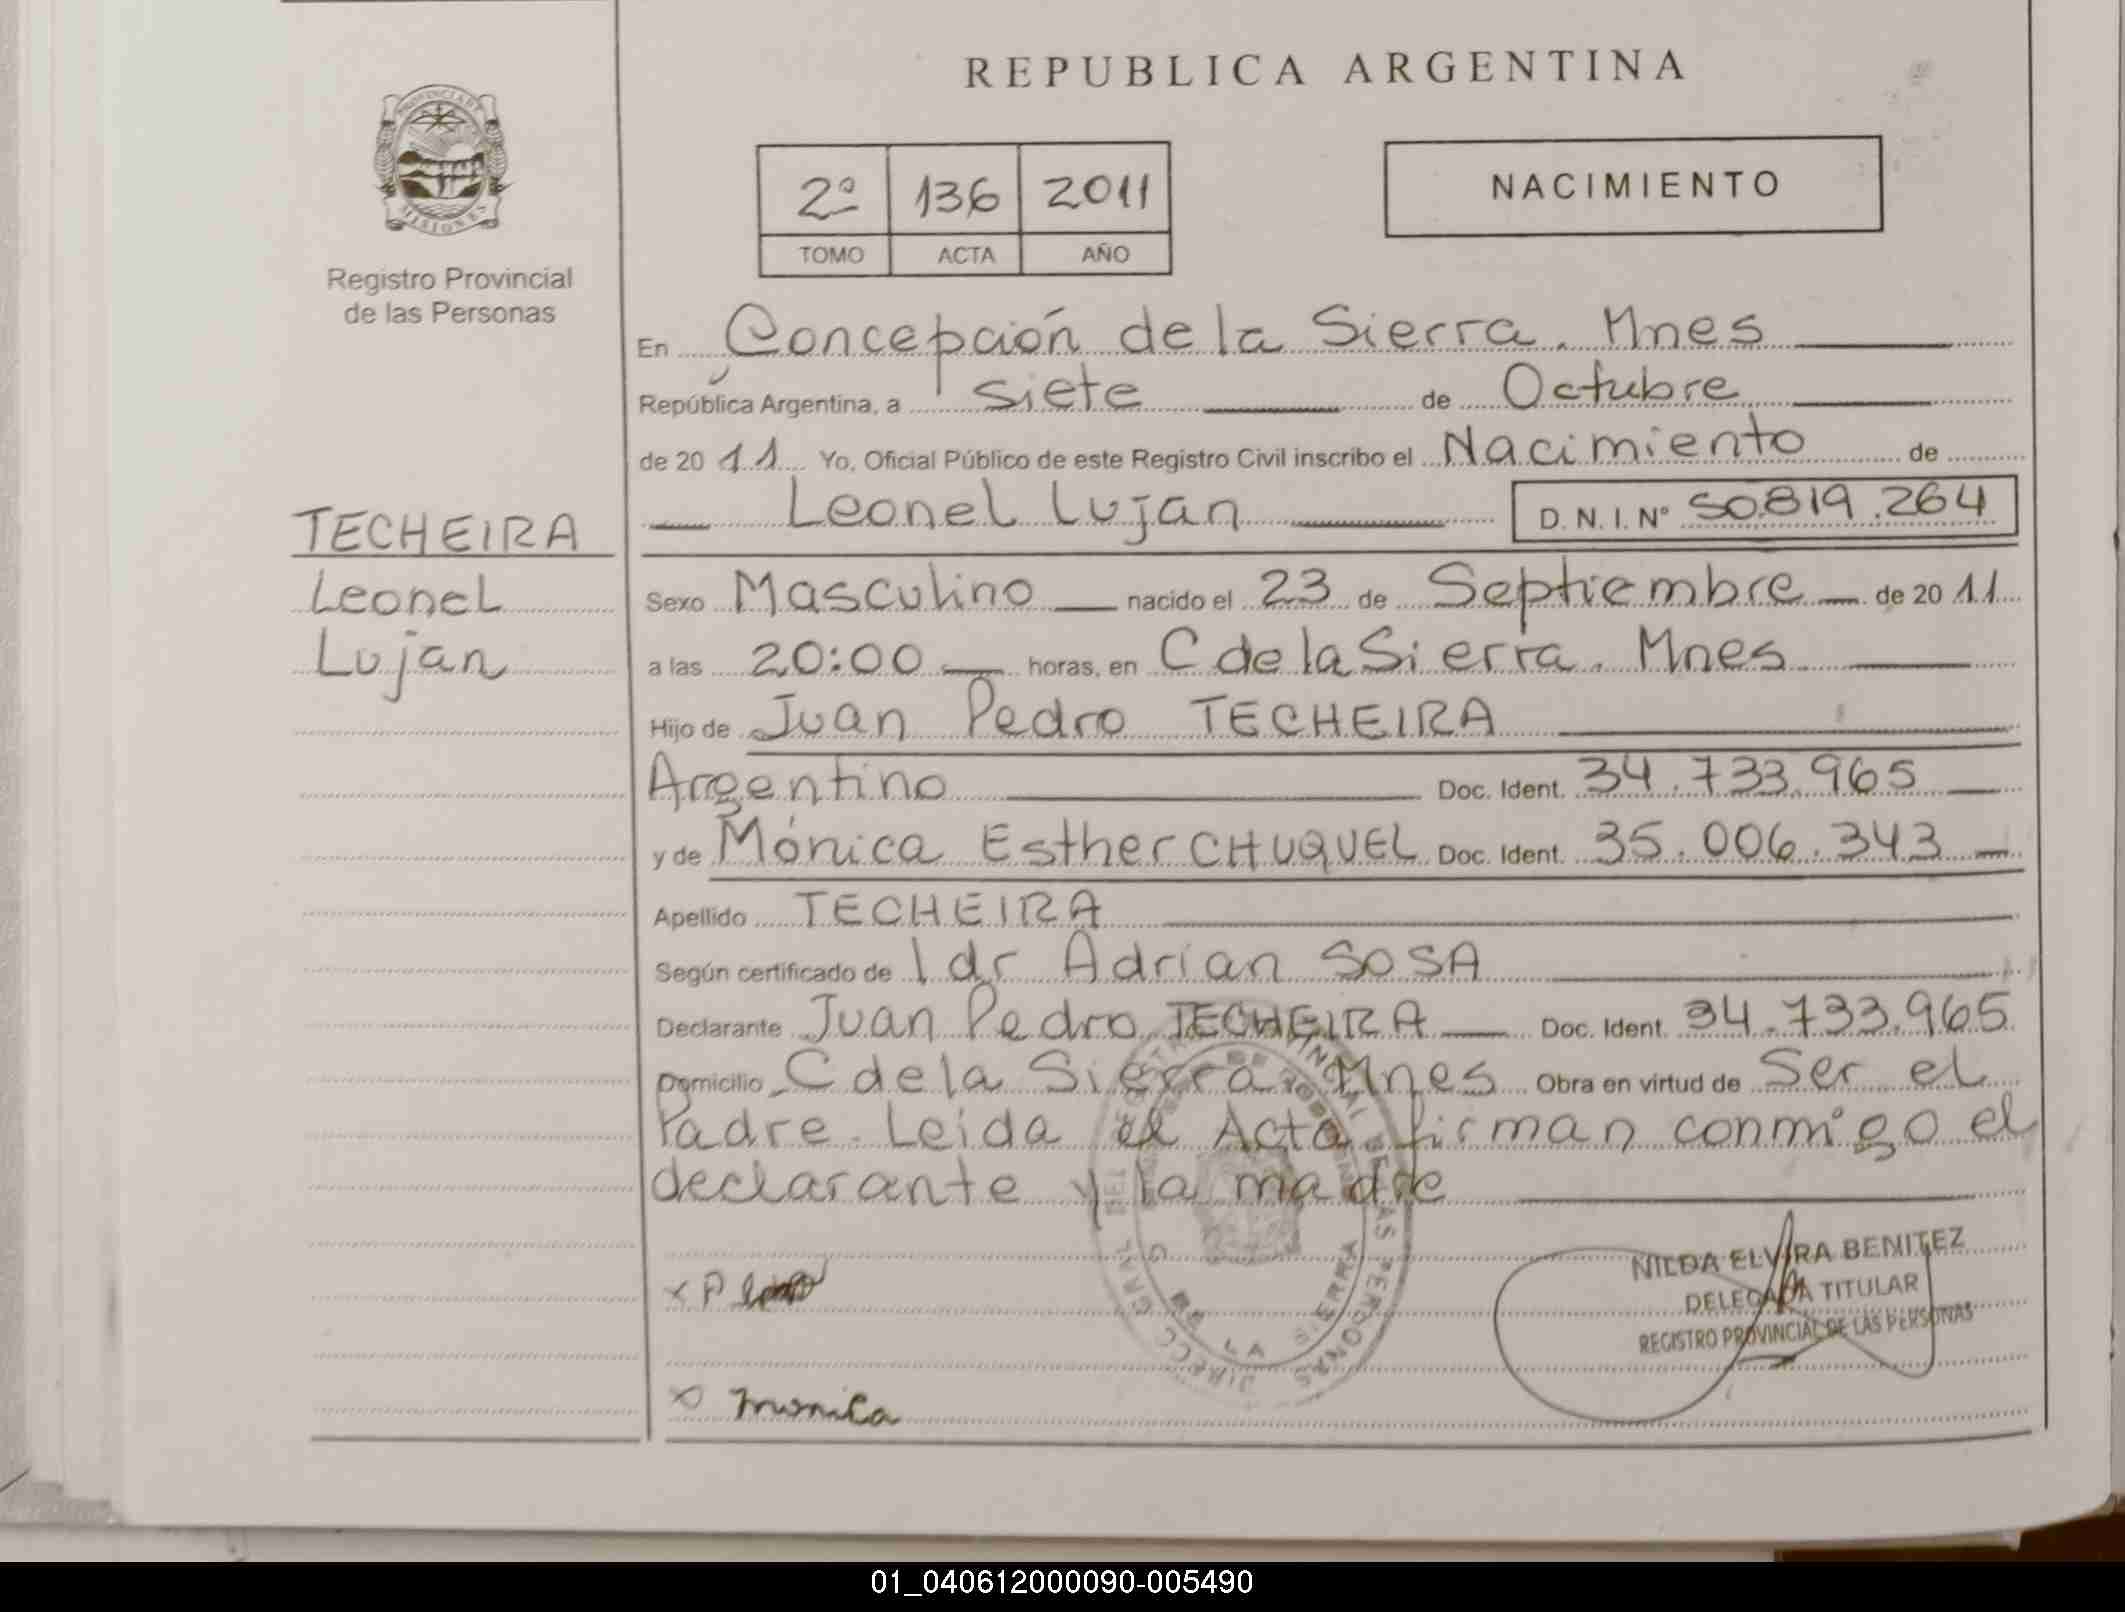 REPUBLICA ARGENTINA
PROVINCIA DE
MISIONES
Registro Provincial
de las Personas
2º 136 2011
TOMO ACTA AÑO
NACIMIENTO
En Concepción de la Sierra. Mnes
República Argentina, a siete de Octubre
de 2011 Yo, Oficial Público de este Registro Civil inscribo el Nacimiento de
Leonel Luján D.N.I. Nº 50.819.264
TECHEIRA
Leonel
Luján
Sexo Masculino nacido el 23 de Septiembre de 2011
a las 20:00 horas, en C de la Sierra. Mnes
Hijo de Juan Pedro TECHEIRA
Argentino Doc. Ident. 34.733.965
y de Mónica Esther CHUQUEL Doc. Ident. 35.006.343
Apellido TECHEIRA
Según certificado de 1 dr Adrian SOSA
Declarante Juan Pedro TECHEIRA Doc. Ident. 34.733.965
Domicilio C de la Sierra Mnes Obra en virtud de Ser el
Padre. Leída el Acta firman conmigo el
declarante y la madre
NILDA ELVIRA BENITEZ
DELEGADA TITULAR
REGISTRO PROVINCIAL DE LAS PERSONAS
x monica
01_040612000090-005490